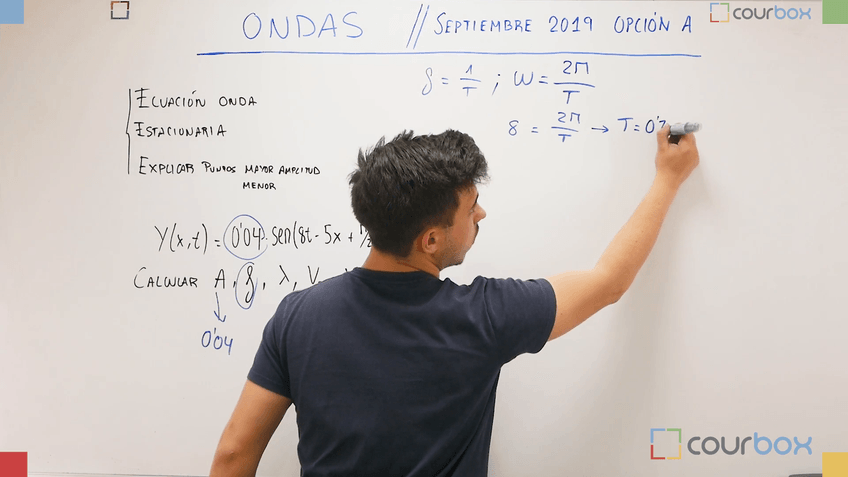 ONDAS // SEPTIEMBRE 2019 OPCIÓN A
courbox
f = 1/T ; ω = 2π/T
8 = 2π/T → T = 0'7
ECUACIÓN ONDA
ESTACIONARIA
EXPLICAR PUNTOS MAYOR AMPLITUD
MENOR
Y(x,t) = 0'04 · sen(8t - 5x +
CALCULAR A, f, λ, V
0'04
courbox